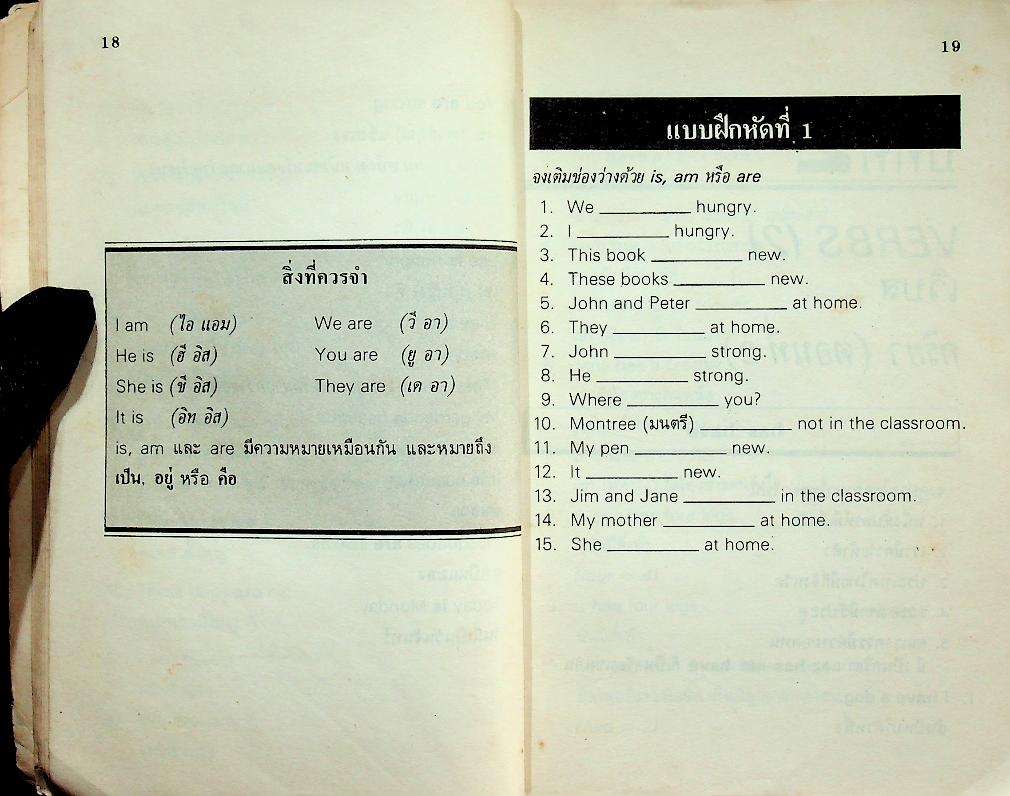 18
สิ่งที่ควรจำ
I am (ไอ แอม) We are (วี อา)
He is (ฮี อิส) You are (ยู อา)
She is (ชี อิส) They are (เด อา)
It is (อิท อิส)
is, am และ are มีความหมายเหมือนกัน และหมายถึง
เป็น, อยู่ หรือ คือ
19
แบบฝึกหัดที่ 1
จงเติมช่องว่างด้วย is, am หรือ are
1. We __________ hungry.
2. I __________ hungry.
3. This book __________ new.
4. These books __________ new.
5. John and Peter __________ at home.
6. They __________ at home.
7. John __________ strong.
8. He __________ strong.
9. Where __________ you?
10. Montree (มนตรี) __________ not in the classroom.
11. My pen __________ new.
12. It __________ new.
13. Jim and Jane __________ in the classroom.
14. My mother __________ at home.
15. She __________ at home.